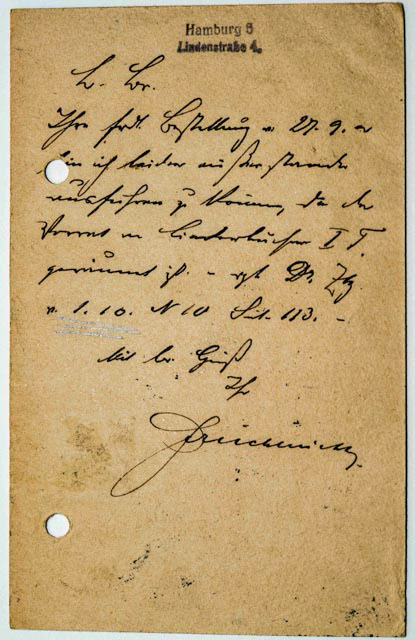 Hamburg 5
Lindenstraße 4.
L. Br.
Ihre frdl. Bestellung v. 27. 9. a
bin ich leider außer stande
ausführen zu können, da der
Vorrat an Liederbücher I T.
geräumt ist. - vgl. Dr. Ztg
v. 1. 10. N 10 Seit. 113. -
Mit br. Gruß
Ihr